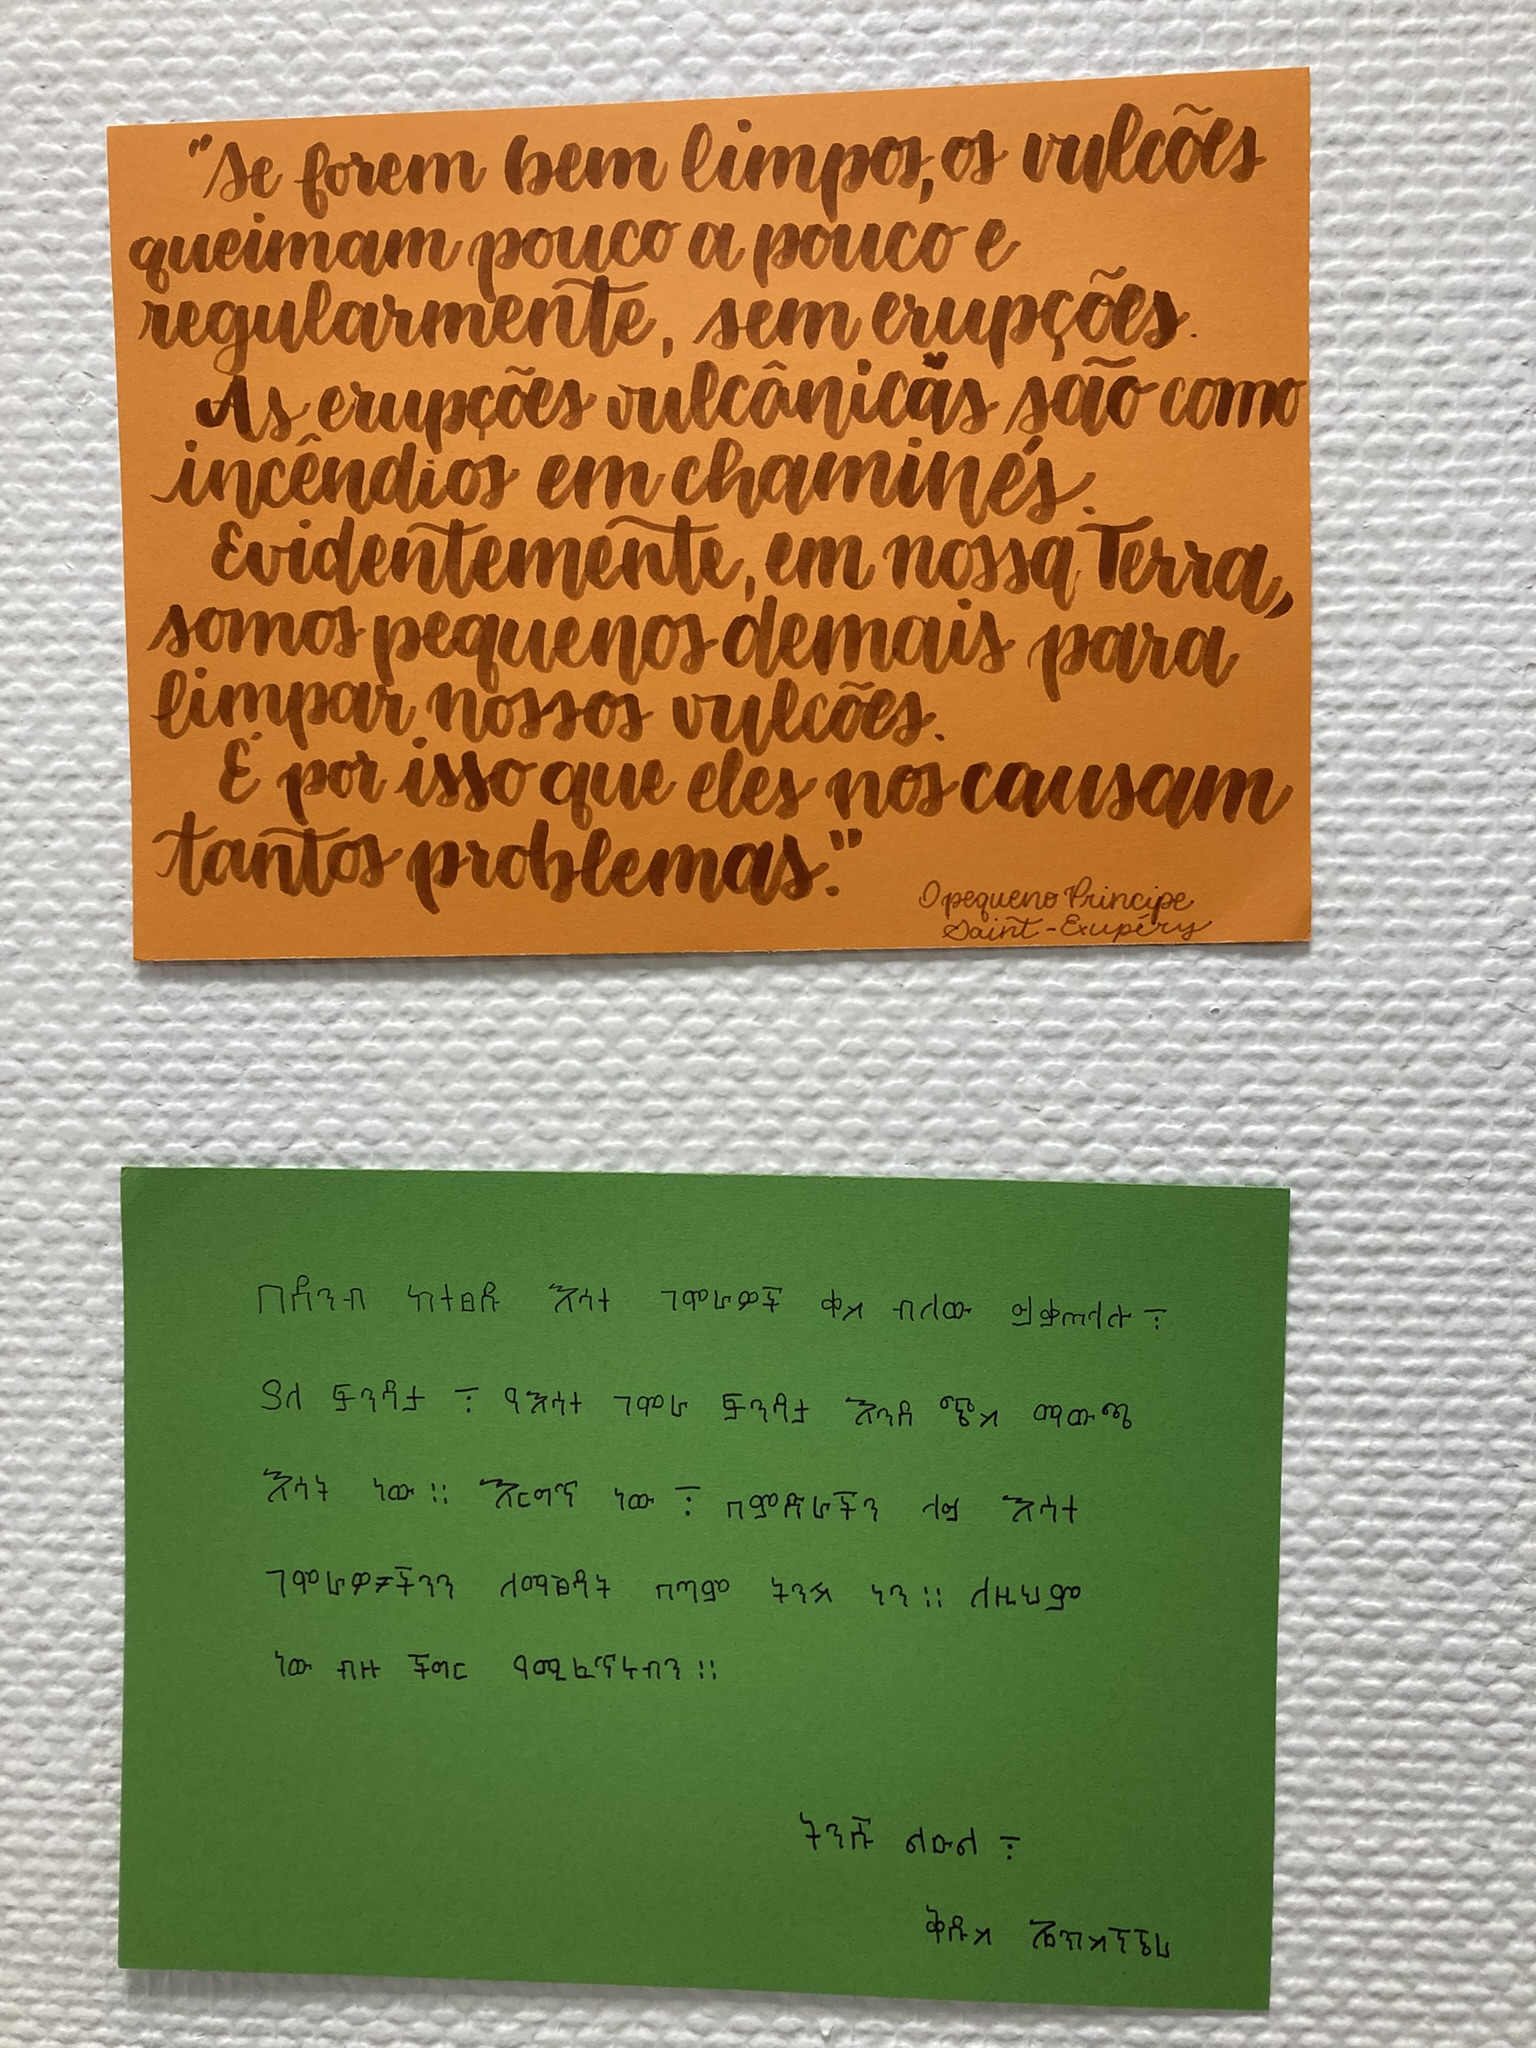 "Se forem bem limpos, os vulcões
queimam pouco a pouco e
regularmente, sem erupções.
As erupções vulcânicas são como
incêndios em chaminés.
Evidentemente, em nossa Terra,
somos pequenos demais para
limpar nossos vulcões.
É por isso que eles nos causam
tantos problemas."
O pequeno Príncipe
Saint-Exupéry
በደንብ ከተፀዱ እሳተ ገሞራዎች ቀስ ብለው ይቃጠላሉ ፣
ያለ ፍንዳታ ፣ የእሳተ ገሞራ ፍንዳታ እንደ ጭስ ማውጫ
እሳት ነው ። እርግጥ ነው ፣ በምድራችን ላይ እሳተ
ገሞራዎቻችንን ለማፅዳት በጣም ትንሽ ነን ። ለዚህም
ነው ብዙ ችግር የሚፈጥሩብን ።
ትንሹ ልዑል ፣
ቅዱስ